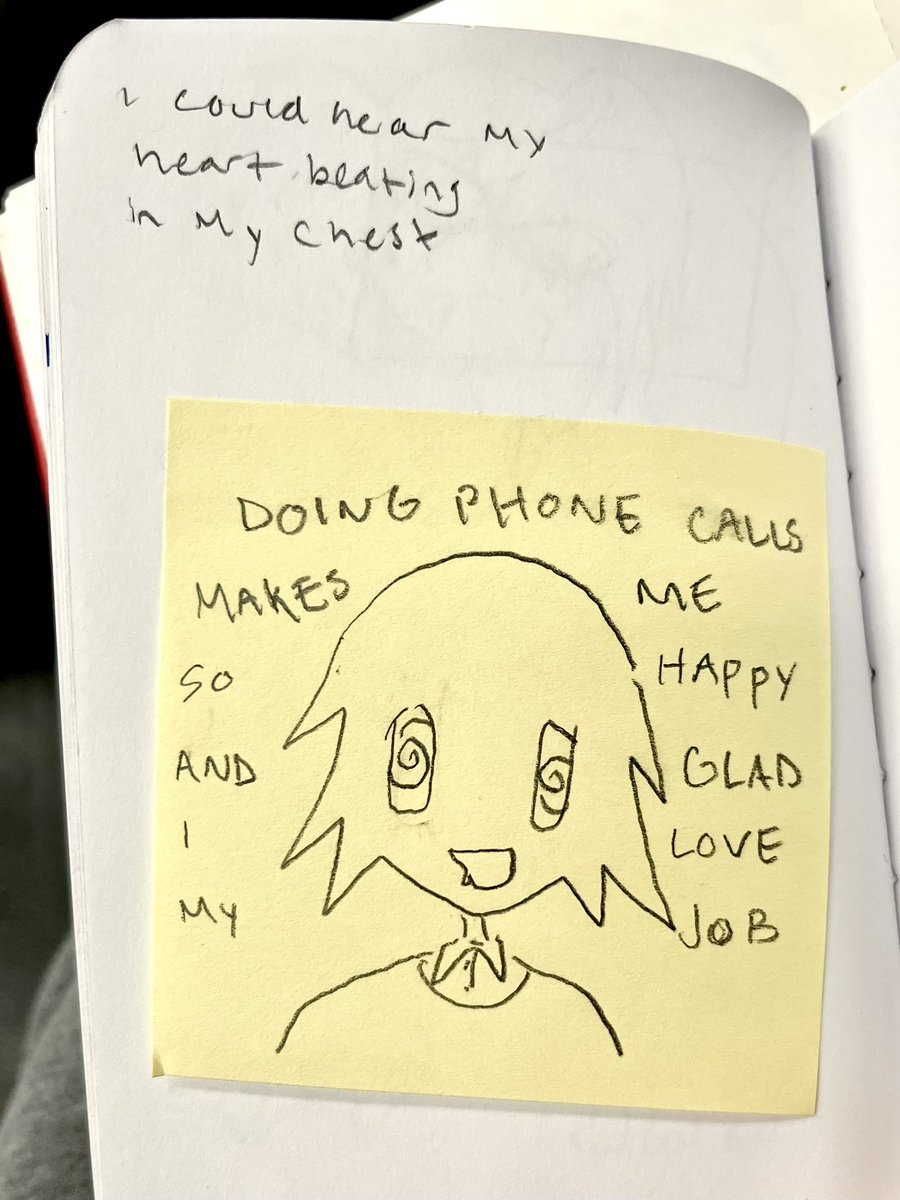 I could hear my
heart beating
in my chest
DOING PHONE CALLS
MAKES ME
SO HAPPY
AND GLAD
I LOVE
MY JOB